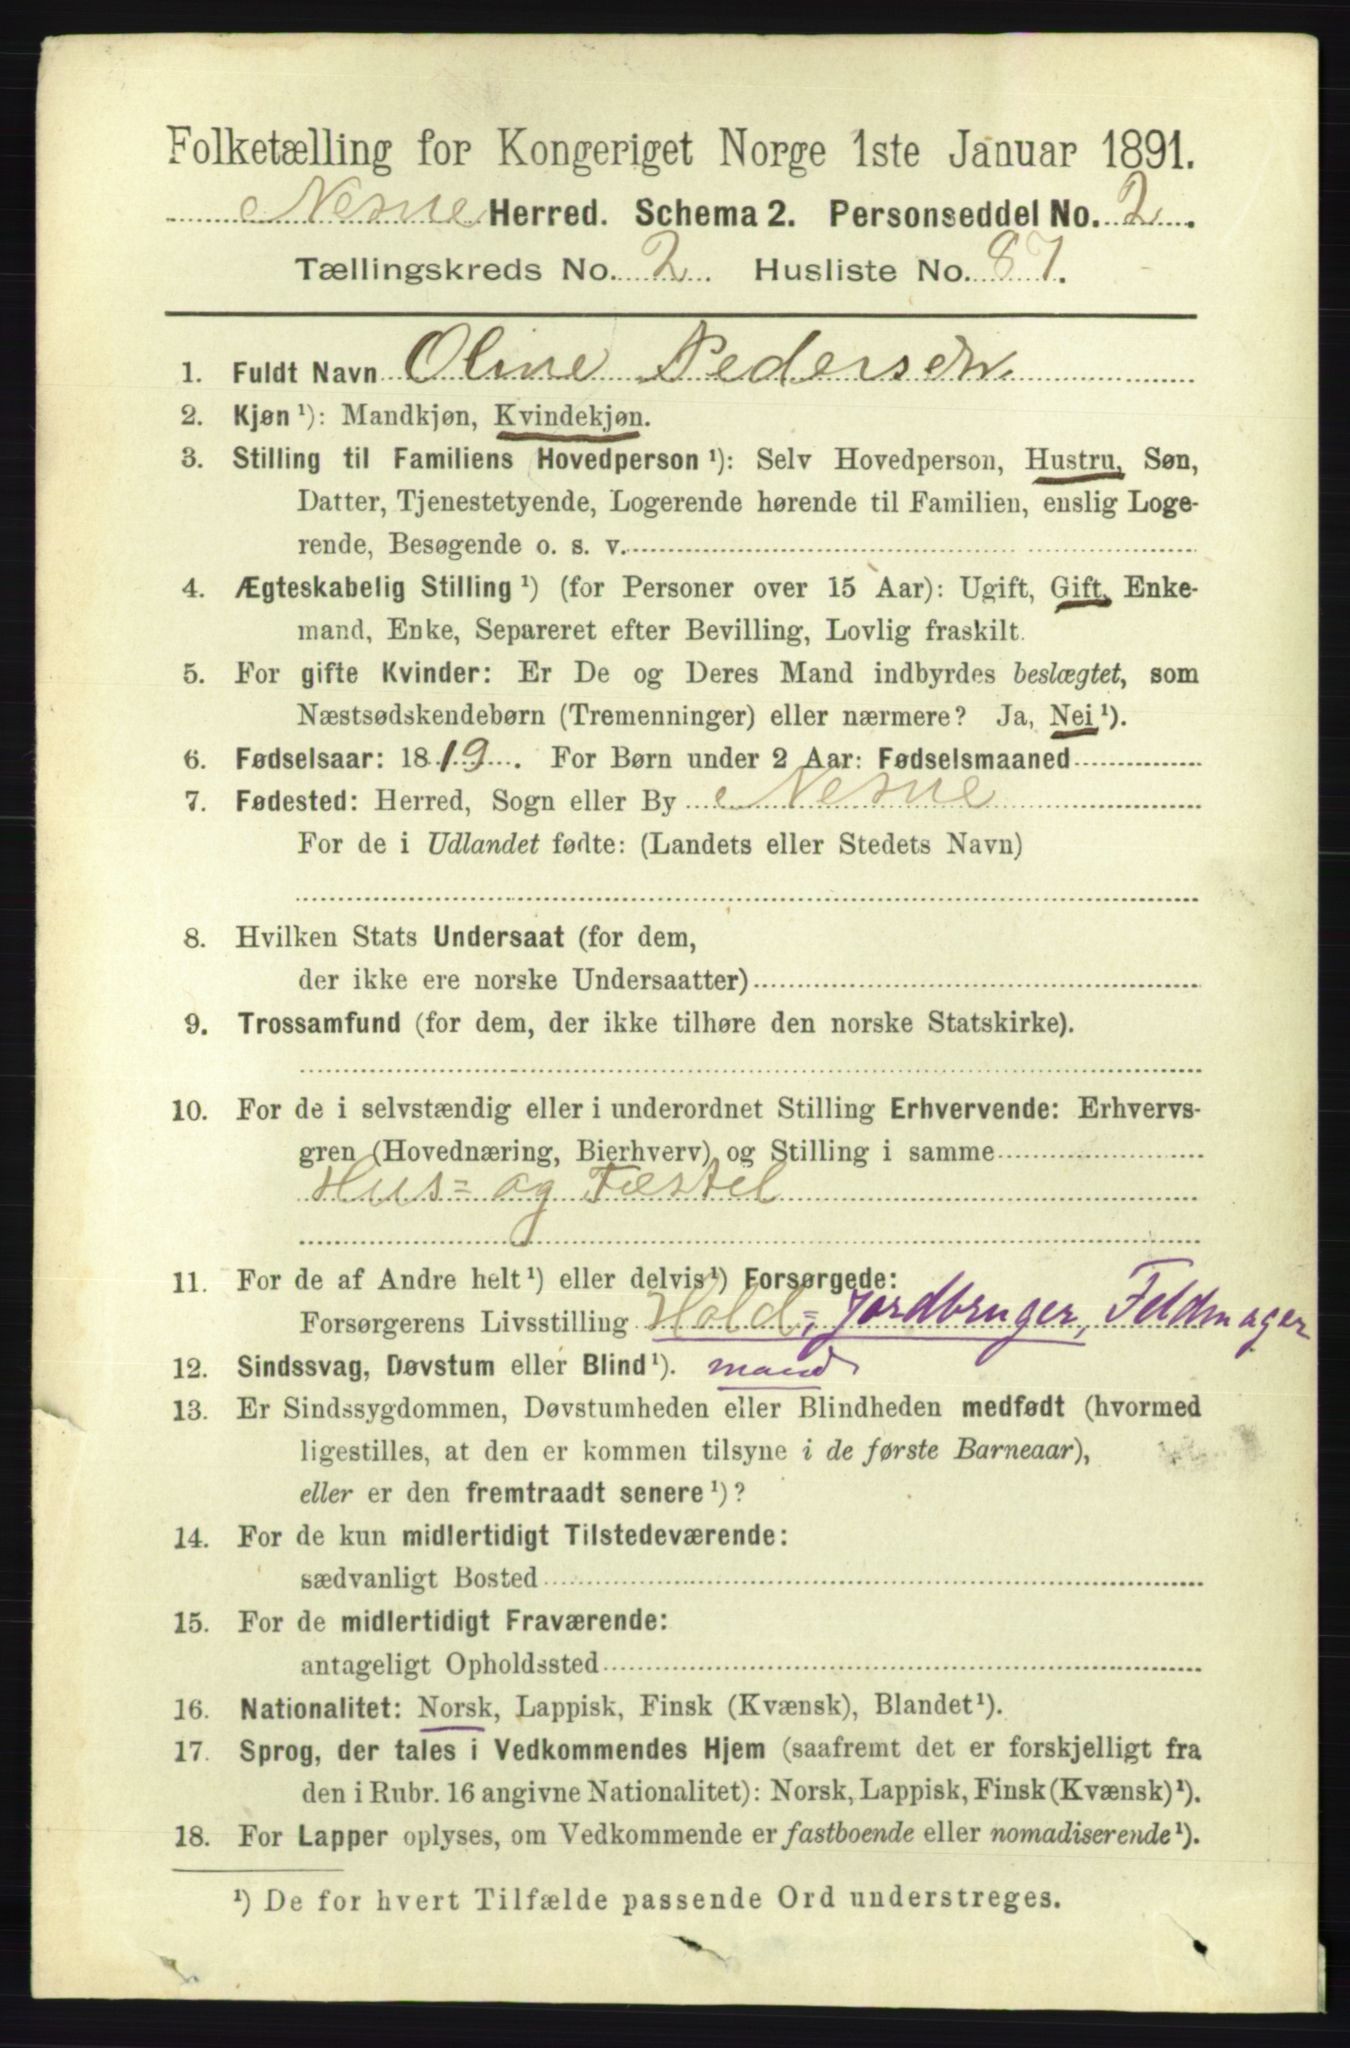 Folketælling for Kongeriget Norge 1ste Januar 1891.
Nesne Herred. Schema 2. Personseddel No. 2.
Tællingskreds No. 2. Husliste No. 87.
1. Fuldt Navn Oline Pedersen
2. Kjøn ¹): Mandkjøn, Kvindekjøn.
3. Stilling til Familiens Hovedperson ¹): Selv Hovedperson, Hustru, Søn,
Datter, Tjenestetyende, Logerende hørende til Familien, enslig Loge-
rende, Besøgende o. s. v.
4. Ægteskabelig Stilling ¹) (for Personer over 15 Aar): Ugift, Gift, Enke-
mand, Enke, Separeret efter Bevilling, Lovlig fraskilt.
5. For gifte Kvinder: Er De og Deres Mand indbyrdes beslægtet, som
Næstsødskendebørn (Tremenninger) eller nærmere? Ja, Nei ¹).
6. Fødselsaar: 1819. For Børn under 2 Aar: Fødselsmaaned
7. Fødested: Herred, Sogn eller By Nesne
For de i Udlandet fødte: (Landets eller Stedets Navn)
8. Hvilken Stats Undersaat (for dem,
der ikke ere norske Undersaatter)
9. Trossamfund (for dem, der ikke tilhøre den norske Statskirke).
10. For de i selvstændig eller i underordnet Stilling Erhvervende: Erhvervs-
gren (Hovednæring, Bierhverv) og Stilling i samme
Hus= og Fæstel
11. For de af Andre helt ¹) eller delvis ¹) Forsørgede:
Forsørgerens Livsstilling Hold=, Jordbruger, Feldmager
12. Sindssvag, Døvstum eller Blind ¹). mand
13. Er Sindssygdommen, Døvstumheden eller Blindheden medfødt (hvormed
ligestilles, at den er kommen tilsyne i de første Barneaar),
eller er den fremtraadt senere ¹)?
14. For de kun midlertidigt Tilstedeværende:
sædvanligt Bosted
15. For de midlertidigt Fraværende:
antageligt Opholdssted
16. Nationalitet: Norsk, Lappisk, Finsk (Kvænsk), Blandet ¹).
17. Sprog, der tales i Vedkommendes Hjem (saafremt det er forskjelligt fra
den i Rubr. 16 angivne Nationalitet): Norsk, Lappisk, Finsk (Kvænsk) ¹).
18. For Lapper oplyses, om Vedkommende er fastboende eller nomadiserende ¹).
¹) De for hvert Tilfælde passende Ord understreges.